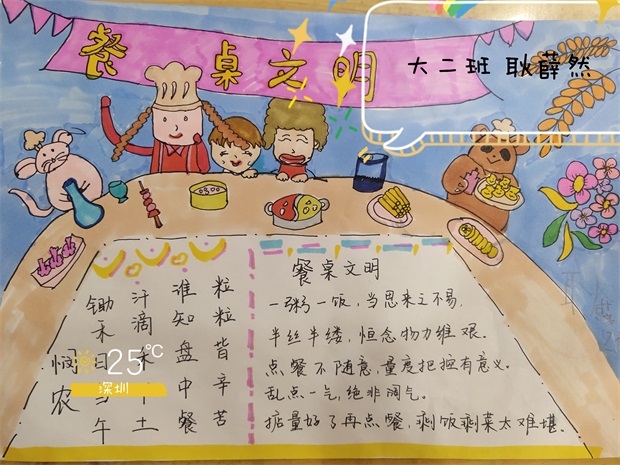 餐桌文明
大二班 耿薛然
25℃
深圳
悯农
锄禾日当午
汗滴禾下土
谁知盘中餐
粒粒皆辛苦
餐桌文明
一粥一饭，当思来之不易.
半丝半缕，恒念物力维艰.
点餐不随意，量度把握有意义.
乱点一气，绝非阔气.
掂量好了再点餐，剩饭剩菜太难堪.